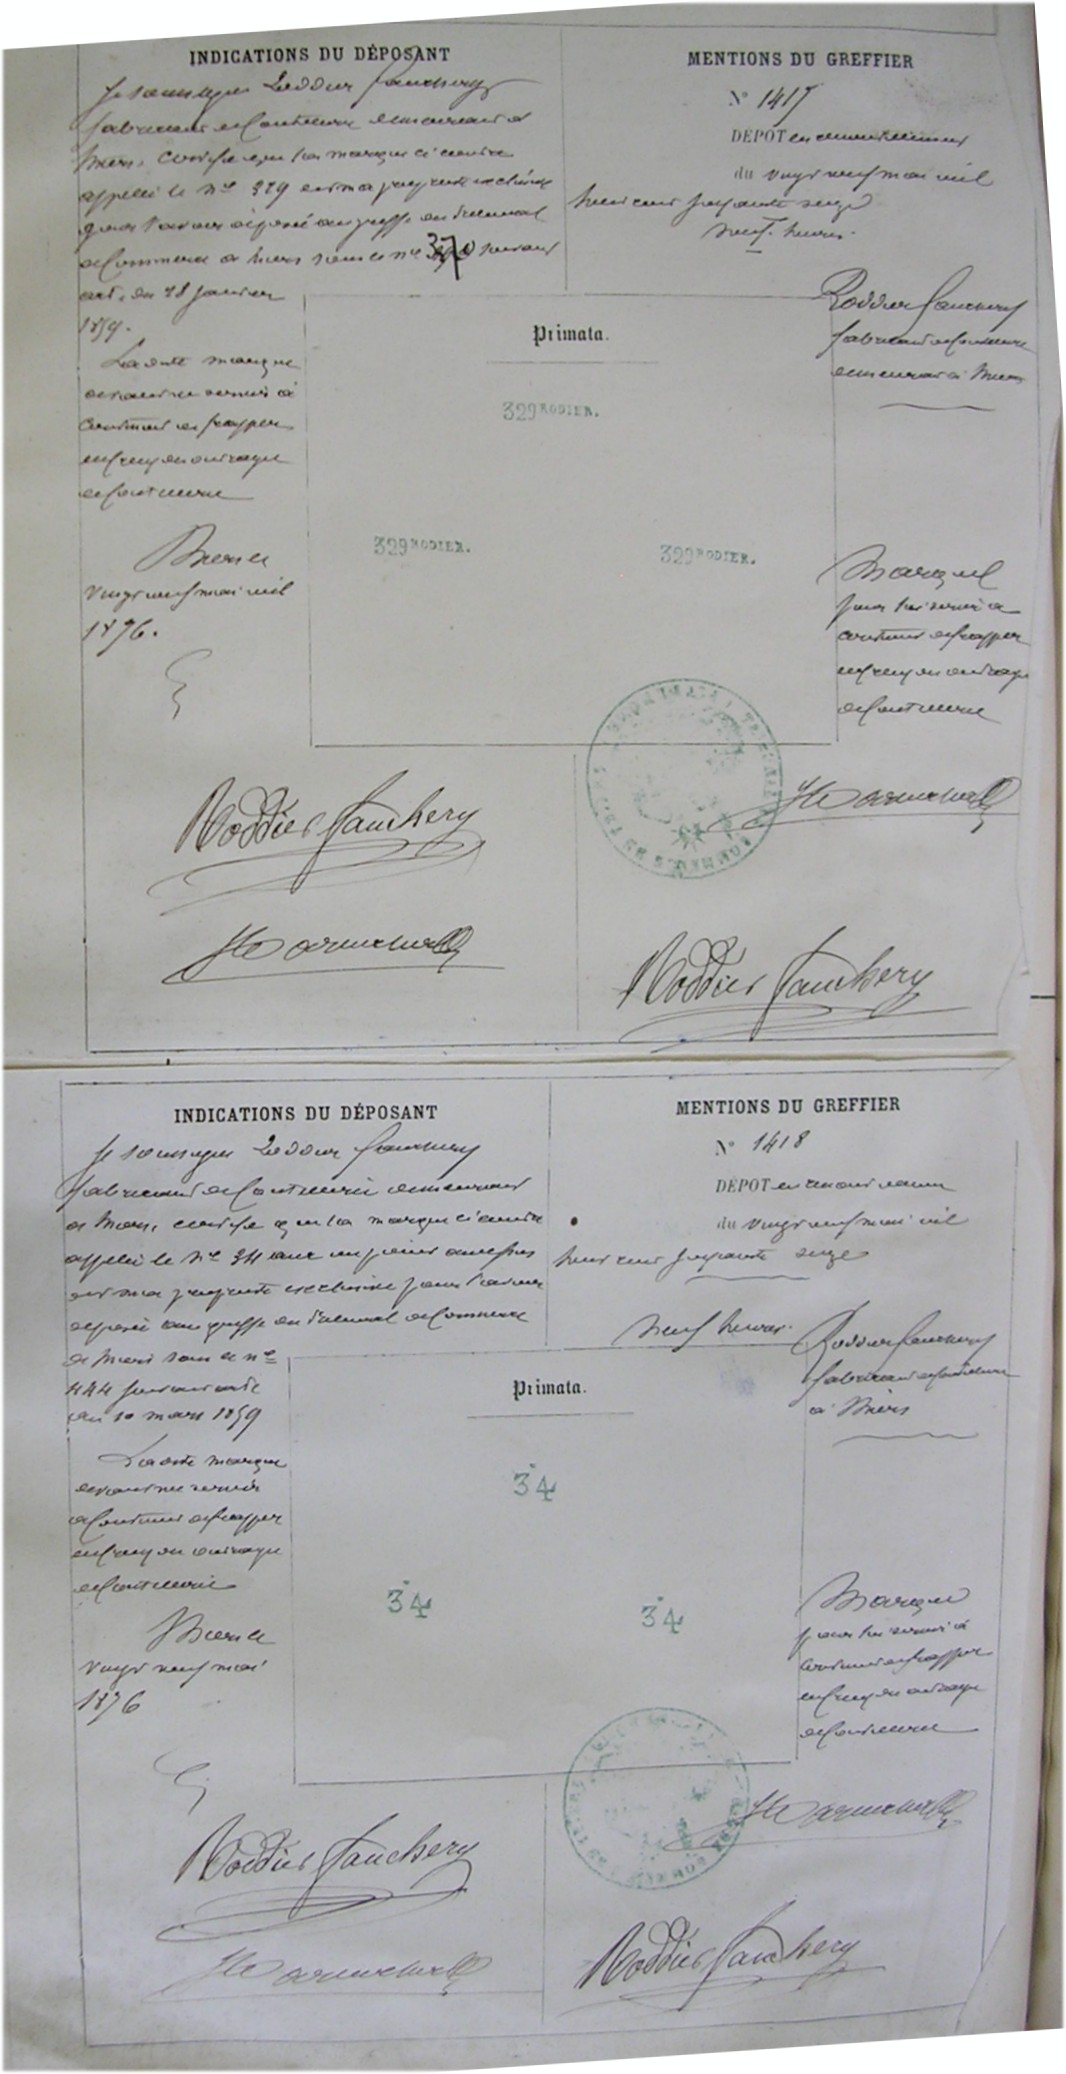 INDICATIONS DU DÉPOSANT
Je soussigné Roddier Fauchery
fabricant de Coutellerie demeurant à
Thiers, certifie que la marque ci contre
appelée le Nº 329 est ma propriété exclusive
pour l'avoir déposé au greffe du Tribunal
de Commerce de Thiers sous le nº 370 suivant
acte du 28 Janvier
1859.
La dite marque
devant me servir à
Continuer de frapper
en creux ou ouvrage
de Coutellerie
Thiers le
vingt neuf mai mil
1876.
Roddier Fauchery
MENTIONS DU GREFFIER
Nº 1417
DÉPOT en renouvellement
du vingt neuf mai mil
huit cent soixante seize
neuf heures.
Primata.
329 RODIER.
329 RODIER.
329 RODIER.
Roddier Fauchery
fabricant de Coutellerie
demeurant à Thiers
Marque
pour lui servir à
continuer de frapper
en creux ou ouvrage
de Coutellerie
Roddier Fauchery
INDICATIONS DU DÉPOSANT
Je soussigné Roddier Fauchery
fabricant de Coutellerie demeurant
à Thiers, certifie que la marque ci contre
appelée le Nº 34 avec un point au dessus
est ma propriété exclusive pour l'avoir
déposé au greffe du Tribunal de Commerce
de Thiers sous le nº
444 suivant acte
du 10 mars 1859
La dite marque
devant me servir
à Continuer de frapper
en creux ou ouvrage
de Coutellerie
Thiers le
vingt neuf mai
1876
Roddier Fauchery
MENTIONS DU GREFFIER
Nº 1418
DÉPOT en renouvellement
du vingt neuf mai mil
huit cent soixante seize
neuf heures.
Primata.
34
34
34
Roddier Fauchery
fabricant de Coutellerie
à Thiers
Marque
pour lui servir à
continuer de frapper
en creux ou ouvrage
de Coutellerie
Roddier Fauchery